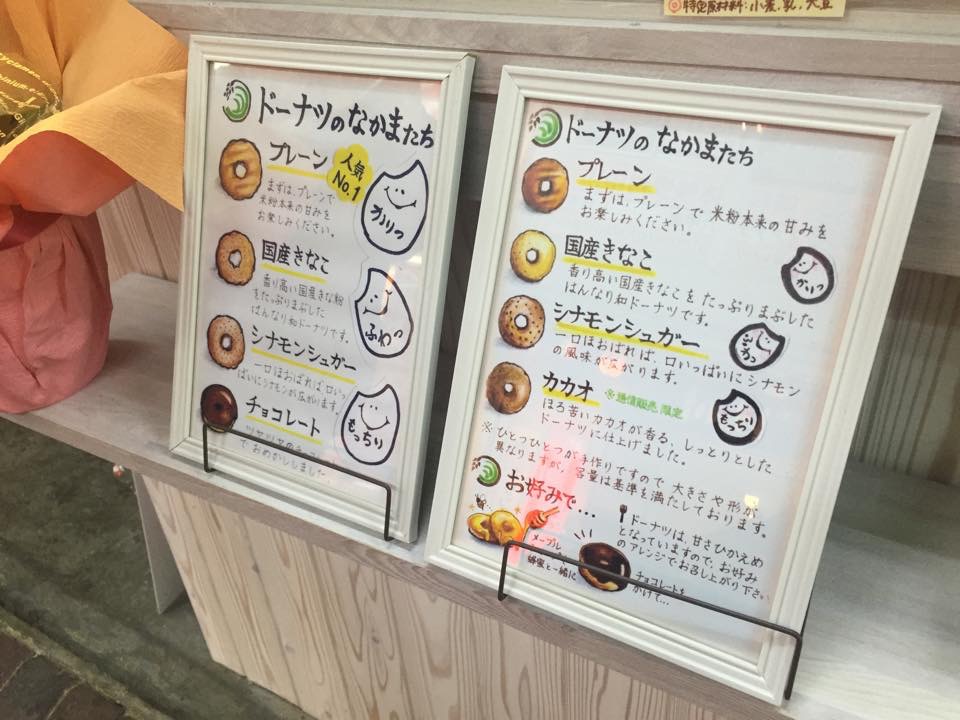 ◎特定原材料:小麦、乳、大豆
ドーナツのなかまたち
プレーン
人気
No.1
まずは、プレーンで
米粉本来の甘みを
お楽しみください。
かりっ
国産きなこ
香り高い国産きな粉
をたっぷりまぶした
はんなり和ドーナツです。
ふわっ
シナモンシュガー
一口ほおばれば、口いっ
ぱいにシナモンが広がります。
チョコレート
でおめかししました
もっちり
ドーナツのなかまたち
プレーン
まずは、プレーンで米粉本来の甘みを
お楽しみください。
国産きなこ
香り高い国産きなこをたっぷりまぶした
はんなり和ドーナツです。
かりっ
シナモンシュガー
一口ほおばれば、口いっぱいにシナモン
の風味が広がります。
ふわっ
カカオ
※通信販売限定
ほろ苦いカカオが香る、しっとりとした
ドーナツに仕上げました。
もっちり
※ひとつひとつが手作りですので大きさや形が
異なりますが、容量は基準を満たしております。
お好みで...
メープル
蜂蜜と一緒に
ドーナツは、甘さひかえめ
となっていますので、お好み
のアレンジでお召し上がり下さい
チョコレートを
かけて...